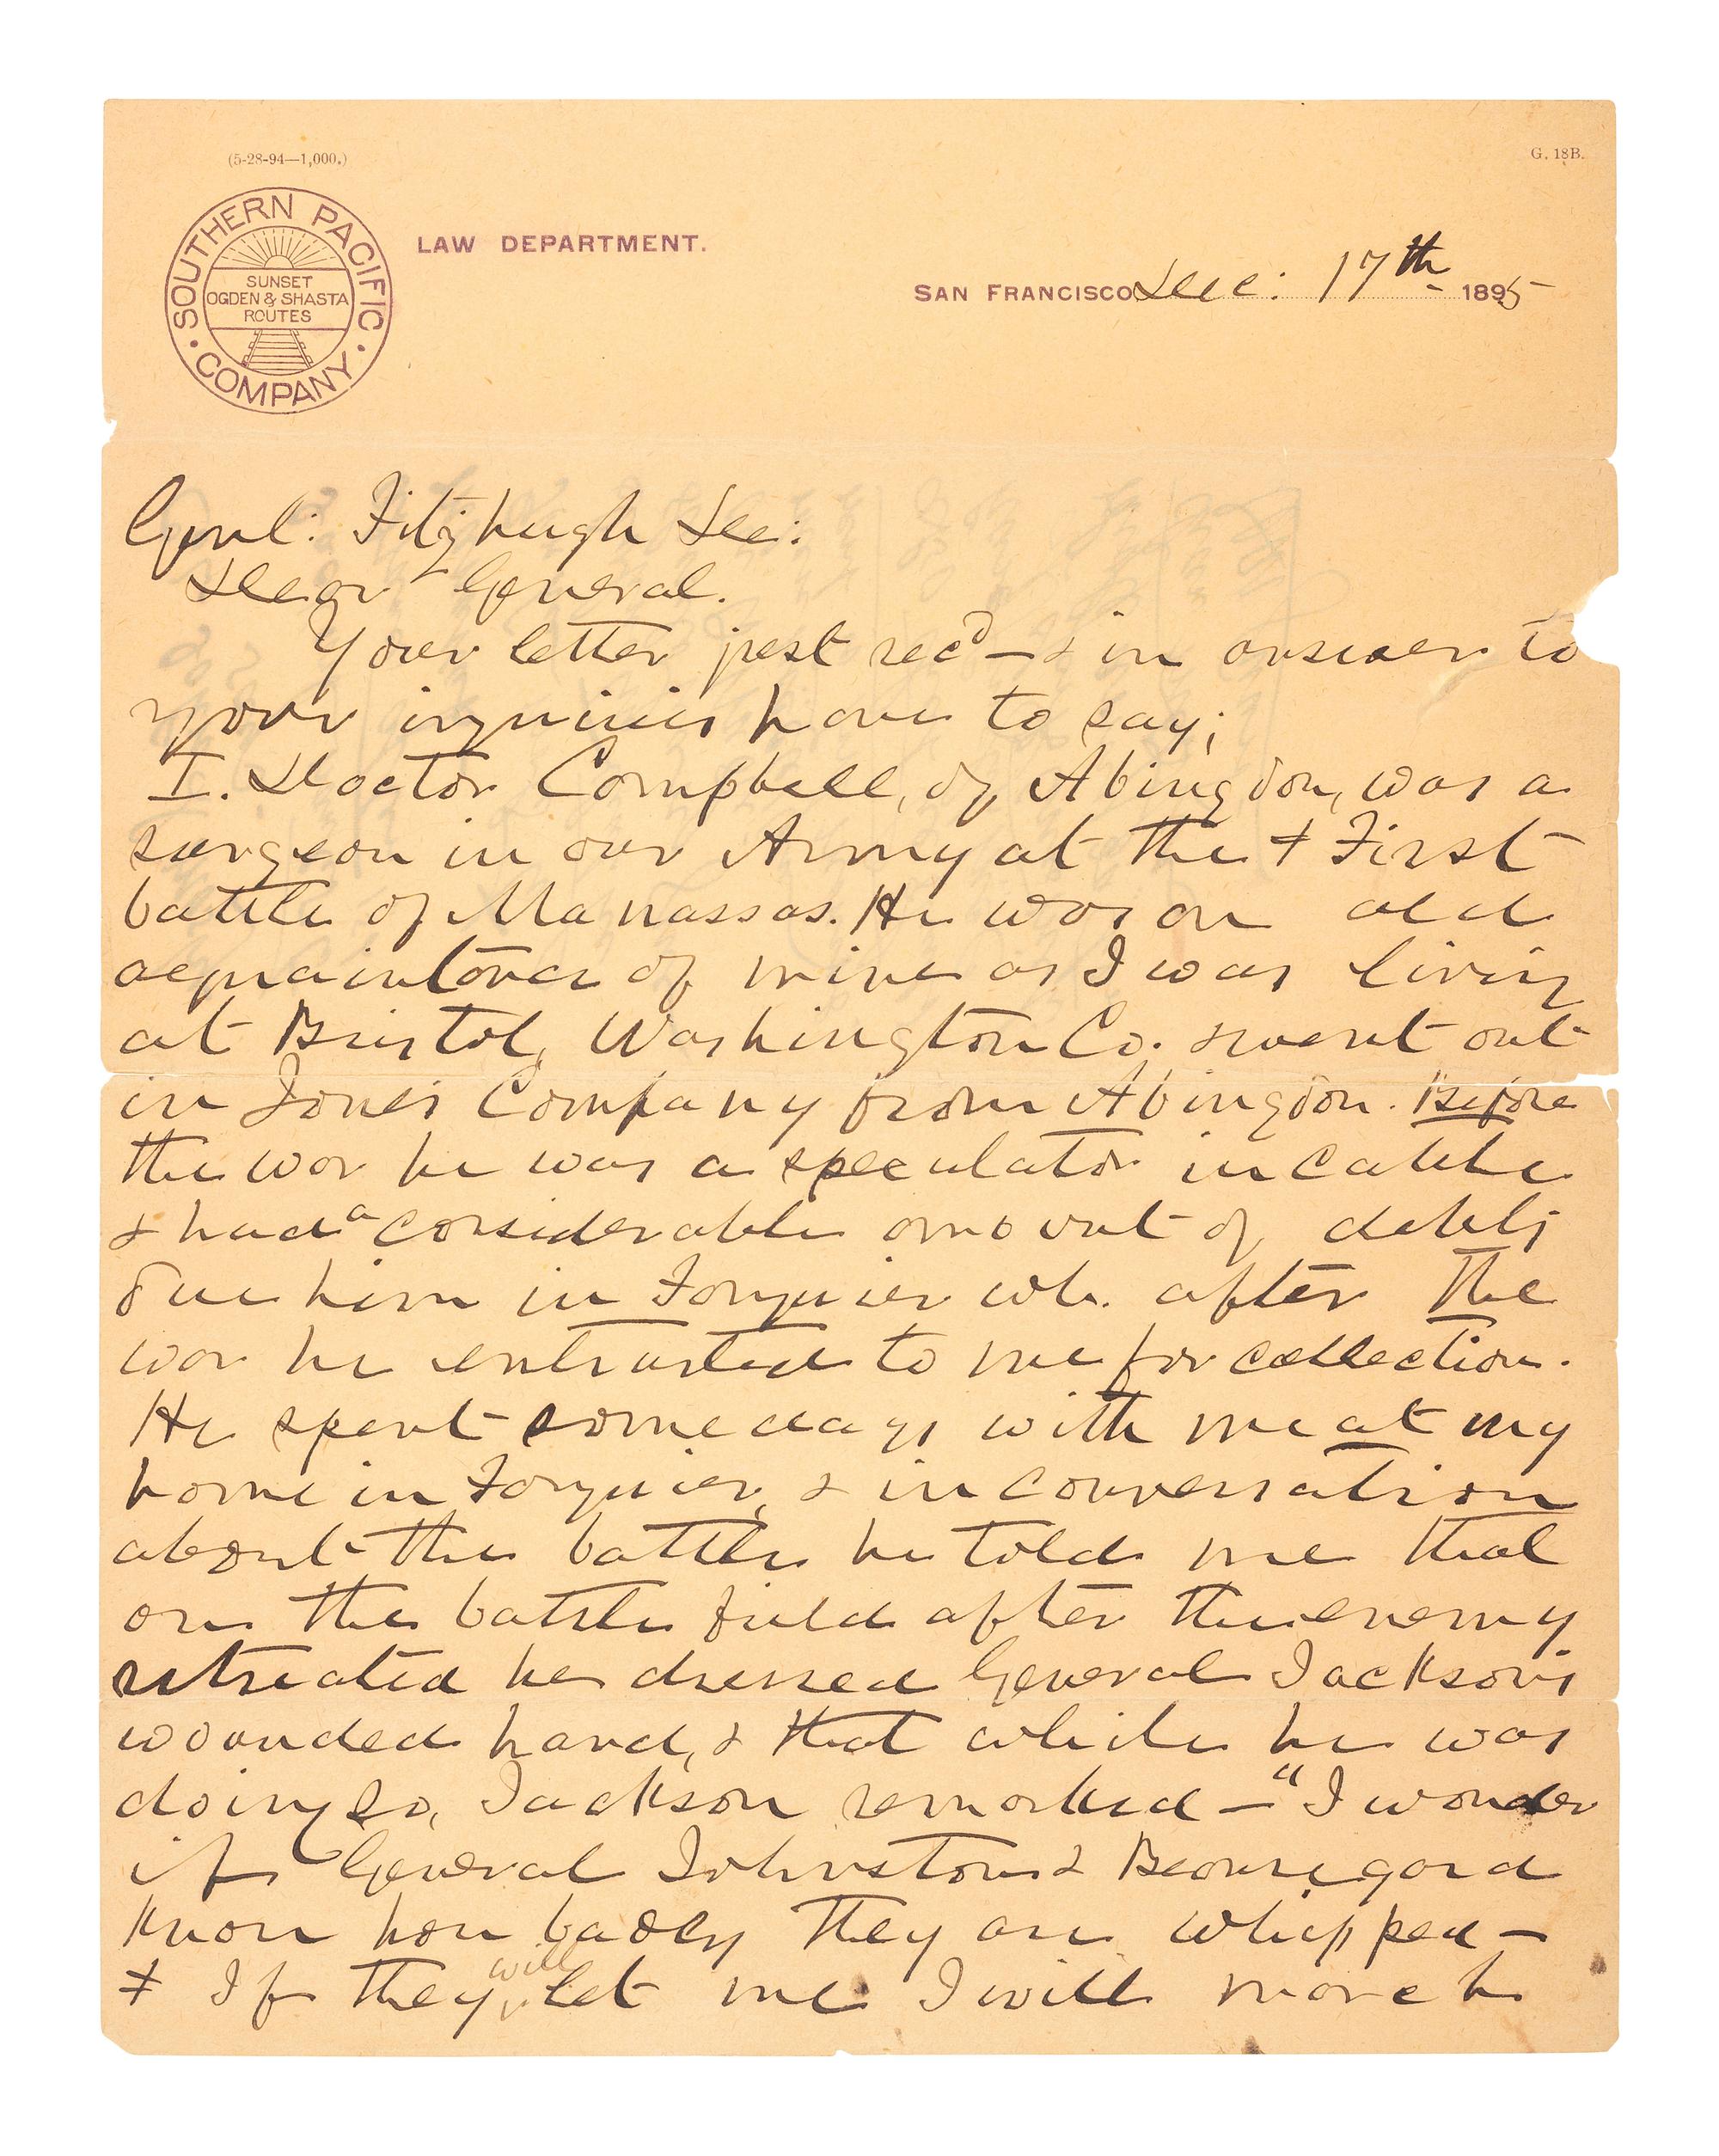 (5-28-94—1,000.)
G. 18B.
SOUTHERN PACIFIC COMPANY
SUNSET
OGDEN & SHASTA
ROUTES
LAW DEPARTMENT.
SAN FRANCISCO Dec: 17th 1895
Genl: Fitzhugh Lee:
Dear General.
Your letter just recd — & in answer to
your inquiries have to say;
I. Doctor Campbell, of Abingdon, was a
surgeon in our Army at the + First
battle of Manassas. He was an old
acquaintance of mine as I was living
at Bristol, Washington Co. & went out
in Jones's Company from Abingdon. Before
the war he was a speculator in cattle
& had a considerable amount of debts
due him in Fauquier wh. after the
war he entrusted to me for collection.
He spent some days with me at my
home in Fauquier, & in conversation
about the battle he told me that
on the battle field after the enemy
retreated he dressed General Jackson's
wounded hand, & that while he was
doing so, Jackson remarked — "I wonder
if General Johnston & Beauregard
know how badly they are whipped —
+ If they will let me I will march